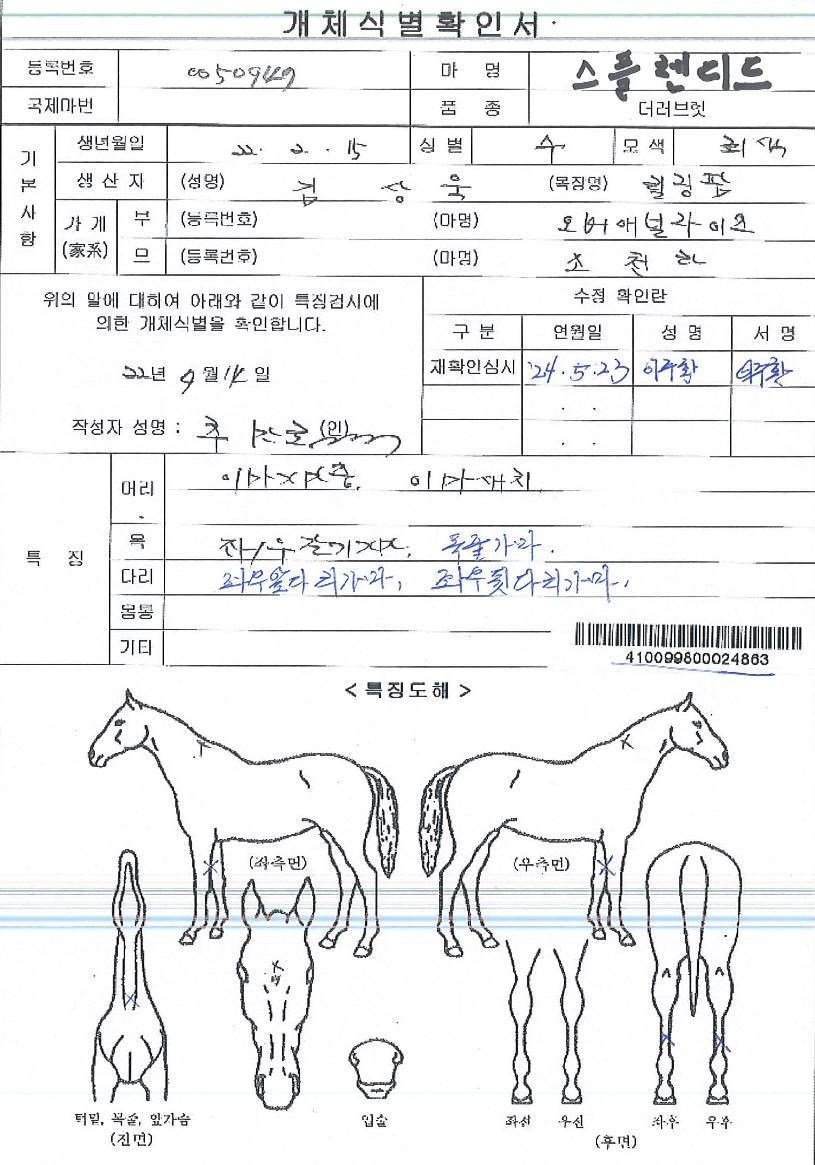 개체식별확인서
등록번호 0050947 마 명 스플렌디드
국제마번 품 종 더러브렛
기본사항
생년월일 22. 2. 15 성 별 수 모 색 회색
생 산 자 (성명) 김 상 욱 (목장명) 힐링팜
가 계 (家系) 부 (등록번호) (마명) 오버애널라이즈
모 (등록번호) (마명) 조 천
위의 말에 대하여 아래와 같이 특징검사에
의한 개체식별을 확인합니다.
22년 9월 14일
작성자 성명 : (인)
수정 확인란
구 분 연월일 성 명 서 명
재확인심사 '24.5.23 이주환 이주환
. .
. .
특 징
머리 이마자모중, 이마
목 좌/우 찰기자모, 목줄가마.
다리 좌우앞다리가마, 좌우뒷다리가마.
몸통
기타
410099800024863
< 특징도해 >
(좌측면) (우측면)
턱밑, 목줄, 앞가슴
(전면)
입술
좌전 우전 좌후 우후
(후면)